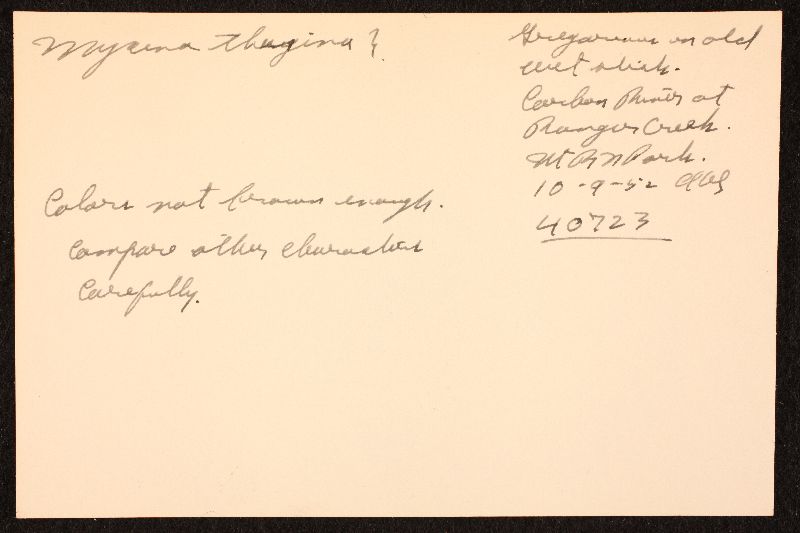 Mycena thujina ?
Colors not brown enough.
Compare other characters
Carefully.
Gregarious on old
wet stick.
Carbon River at
Ranger Creek.
Mt R N Park.
10-9-52 AHS
40723